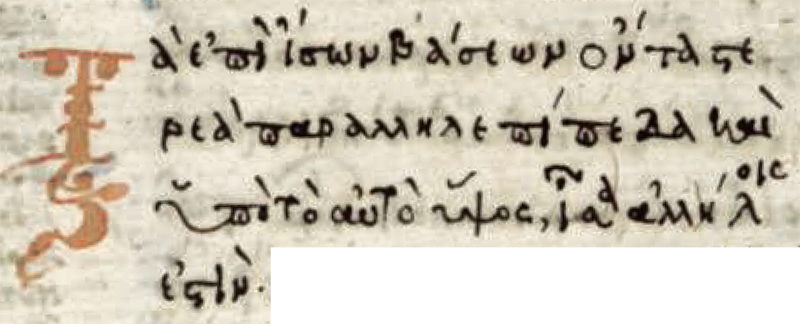 Τὰ ἐπὶ ἴσων βάσεων ὄντα στε
ρεὰ παραλληλεπίπεδα καὶ
ὑπὸ τὸ αὐτὸ ὕψος, ἴσα ἀλλήλοις
ἐστίν.